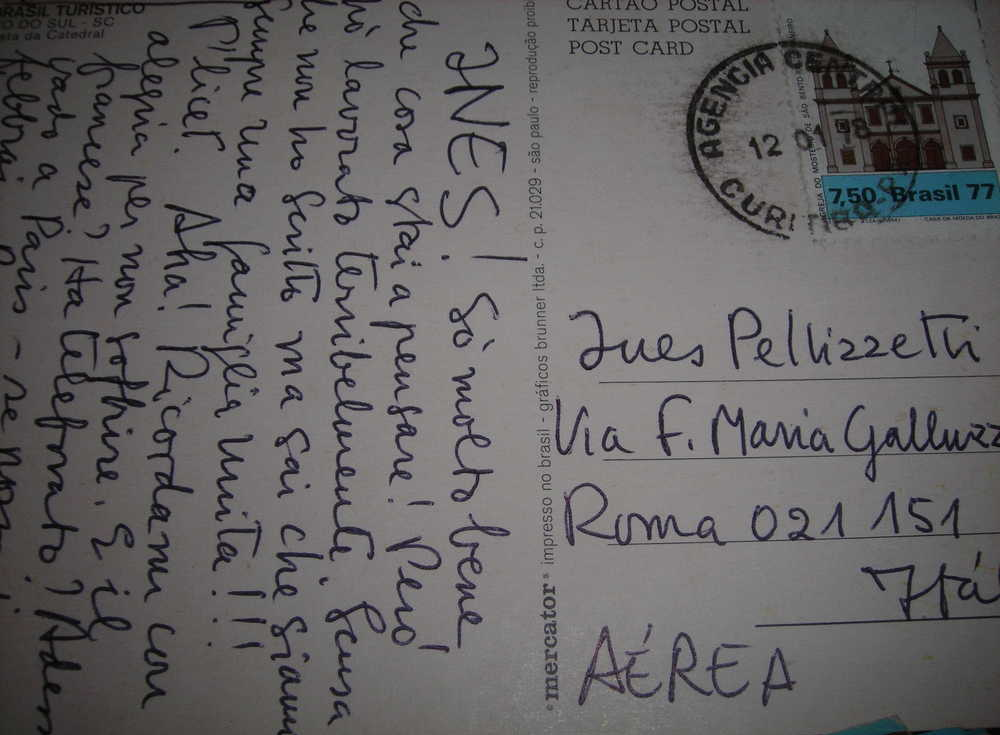 BRASIL TURÍSTICO
DO SUL - SC
sta da Catedral
INES! Sò molto bene
che cosa stai a pensare! Però
hò lavorato terribelmente. Scusa
che non ho scritto ma sai che siamo
sempre una famiglia unita!!!
Aha! Ricordami con
alegria per non soffrire. E il
francese? Ha telefonato? Adesso
vado a Paris - se non
febbrai
mercator impresso no brasil - gráficos brunner ltda. - c. p. 21.029 - são paulo - reprodução proib
CARTÃO POSTAL
TARJETA POSTAL
POST CARD
AGENCIA CENT
12
CURI
IGREJA DO MOSTEIRO DE SÃO BENTO
7,50 Brasil 77
CASA DA MOEDA DO BRA
Ines Pellizzetti
Via F. Maria Galluzz
Roma 021 151
Itá
AÉREA